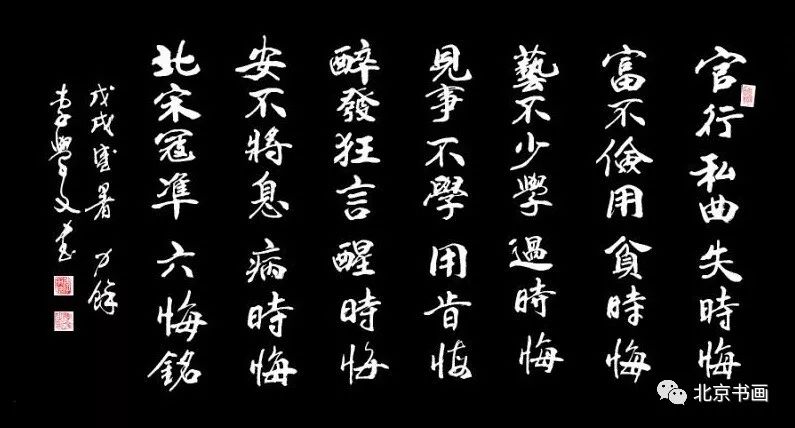 官行私曲失時悔
富不儉用貧時悔
藝不少學過時悔
見事不學用旹悔
醉發狂言醒時悔
安不將息病時悔
北宋冦準六悔銘
戊戌盛暑 力餘
李學文书
北京书画